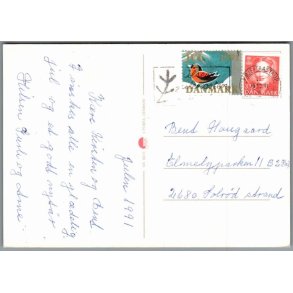 Julen 1991
Kære Kirsten og Bent
I ønskes alle en glædelig
jul og et godt nytår
Hilsen
DANMARK
DANMARK
Bent Haugaard
Elmelyparken 11 B
2680 Solrød strand